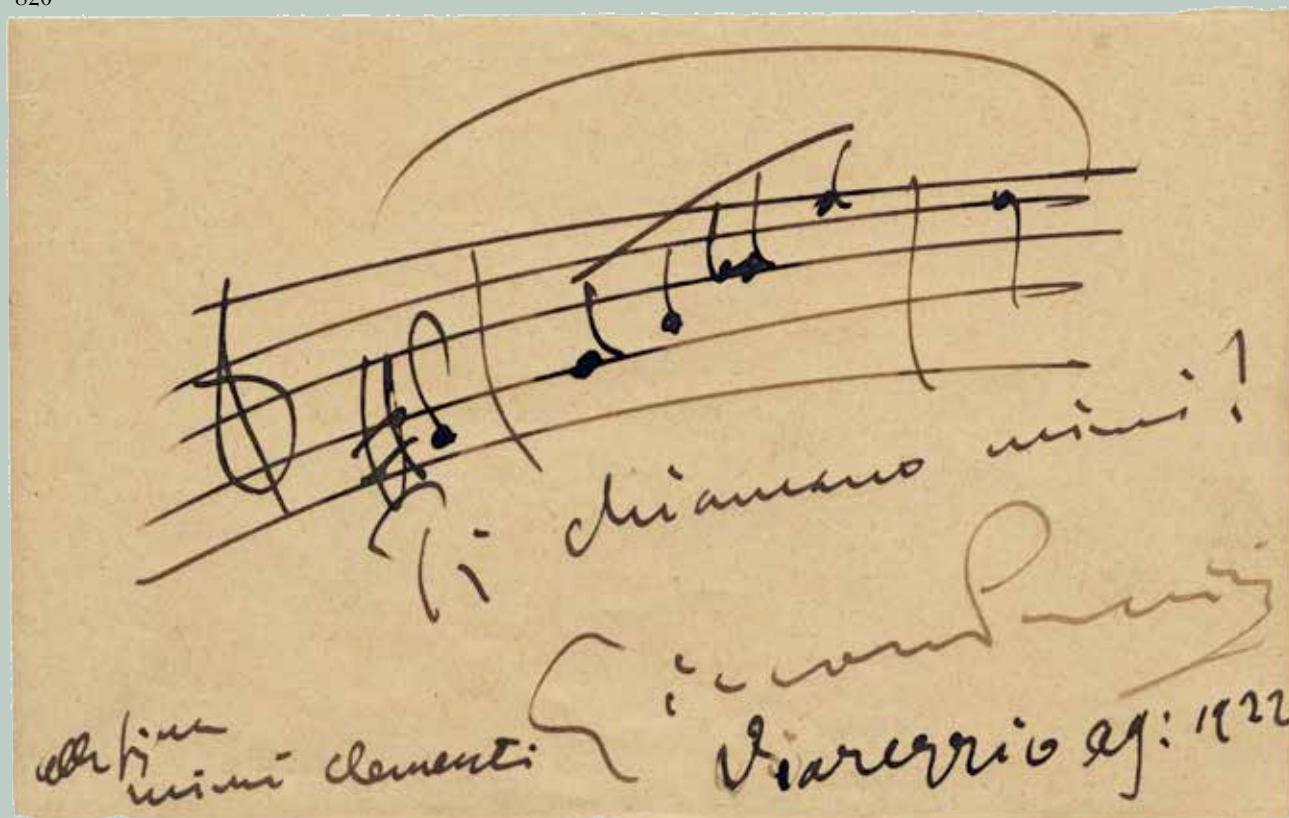 820
Ti chiamano mimi!
Giacomo Puccini
alla sig.na
mimi clementi
Viareggio ag: 1922